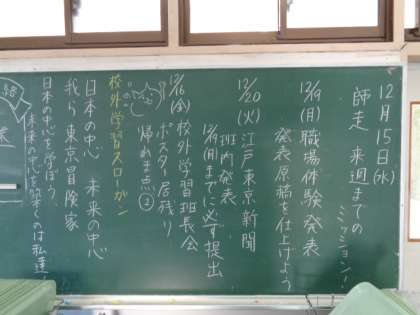 12月15日(水)
師走 来週までの
ミッション!
12/19(月) 職場体験発表
発表原稿を仕上げよう
12/20(火) 江戸東京新聞
班内発表
12/19(月)までに必ず提出
12/16(金) 校外学習班長会
ポスター居残り
帰れま点②
校外学習スローガン
日本の中心 未来の中心
我ら東京冒険家
日本の中心を学ぼう、
未来の中心を築くのは私達